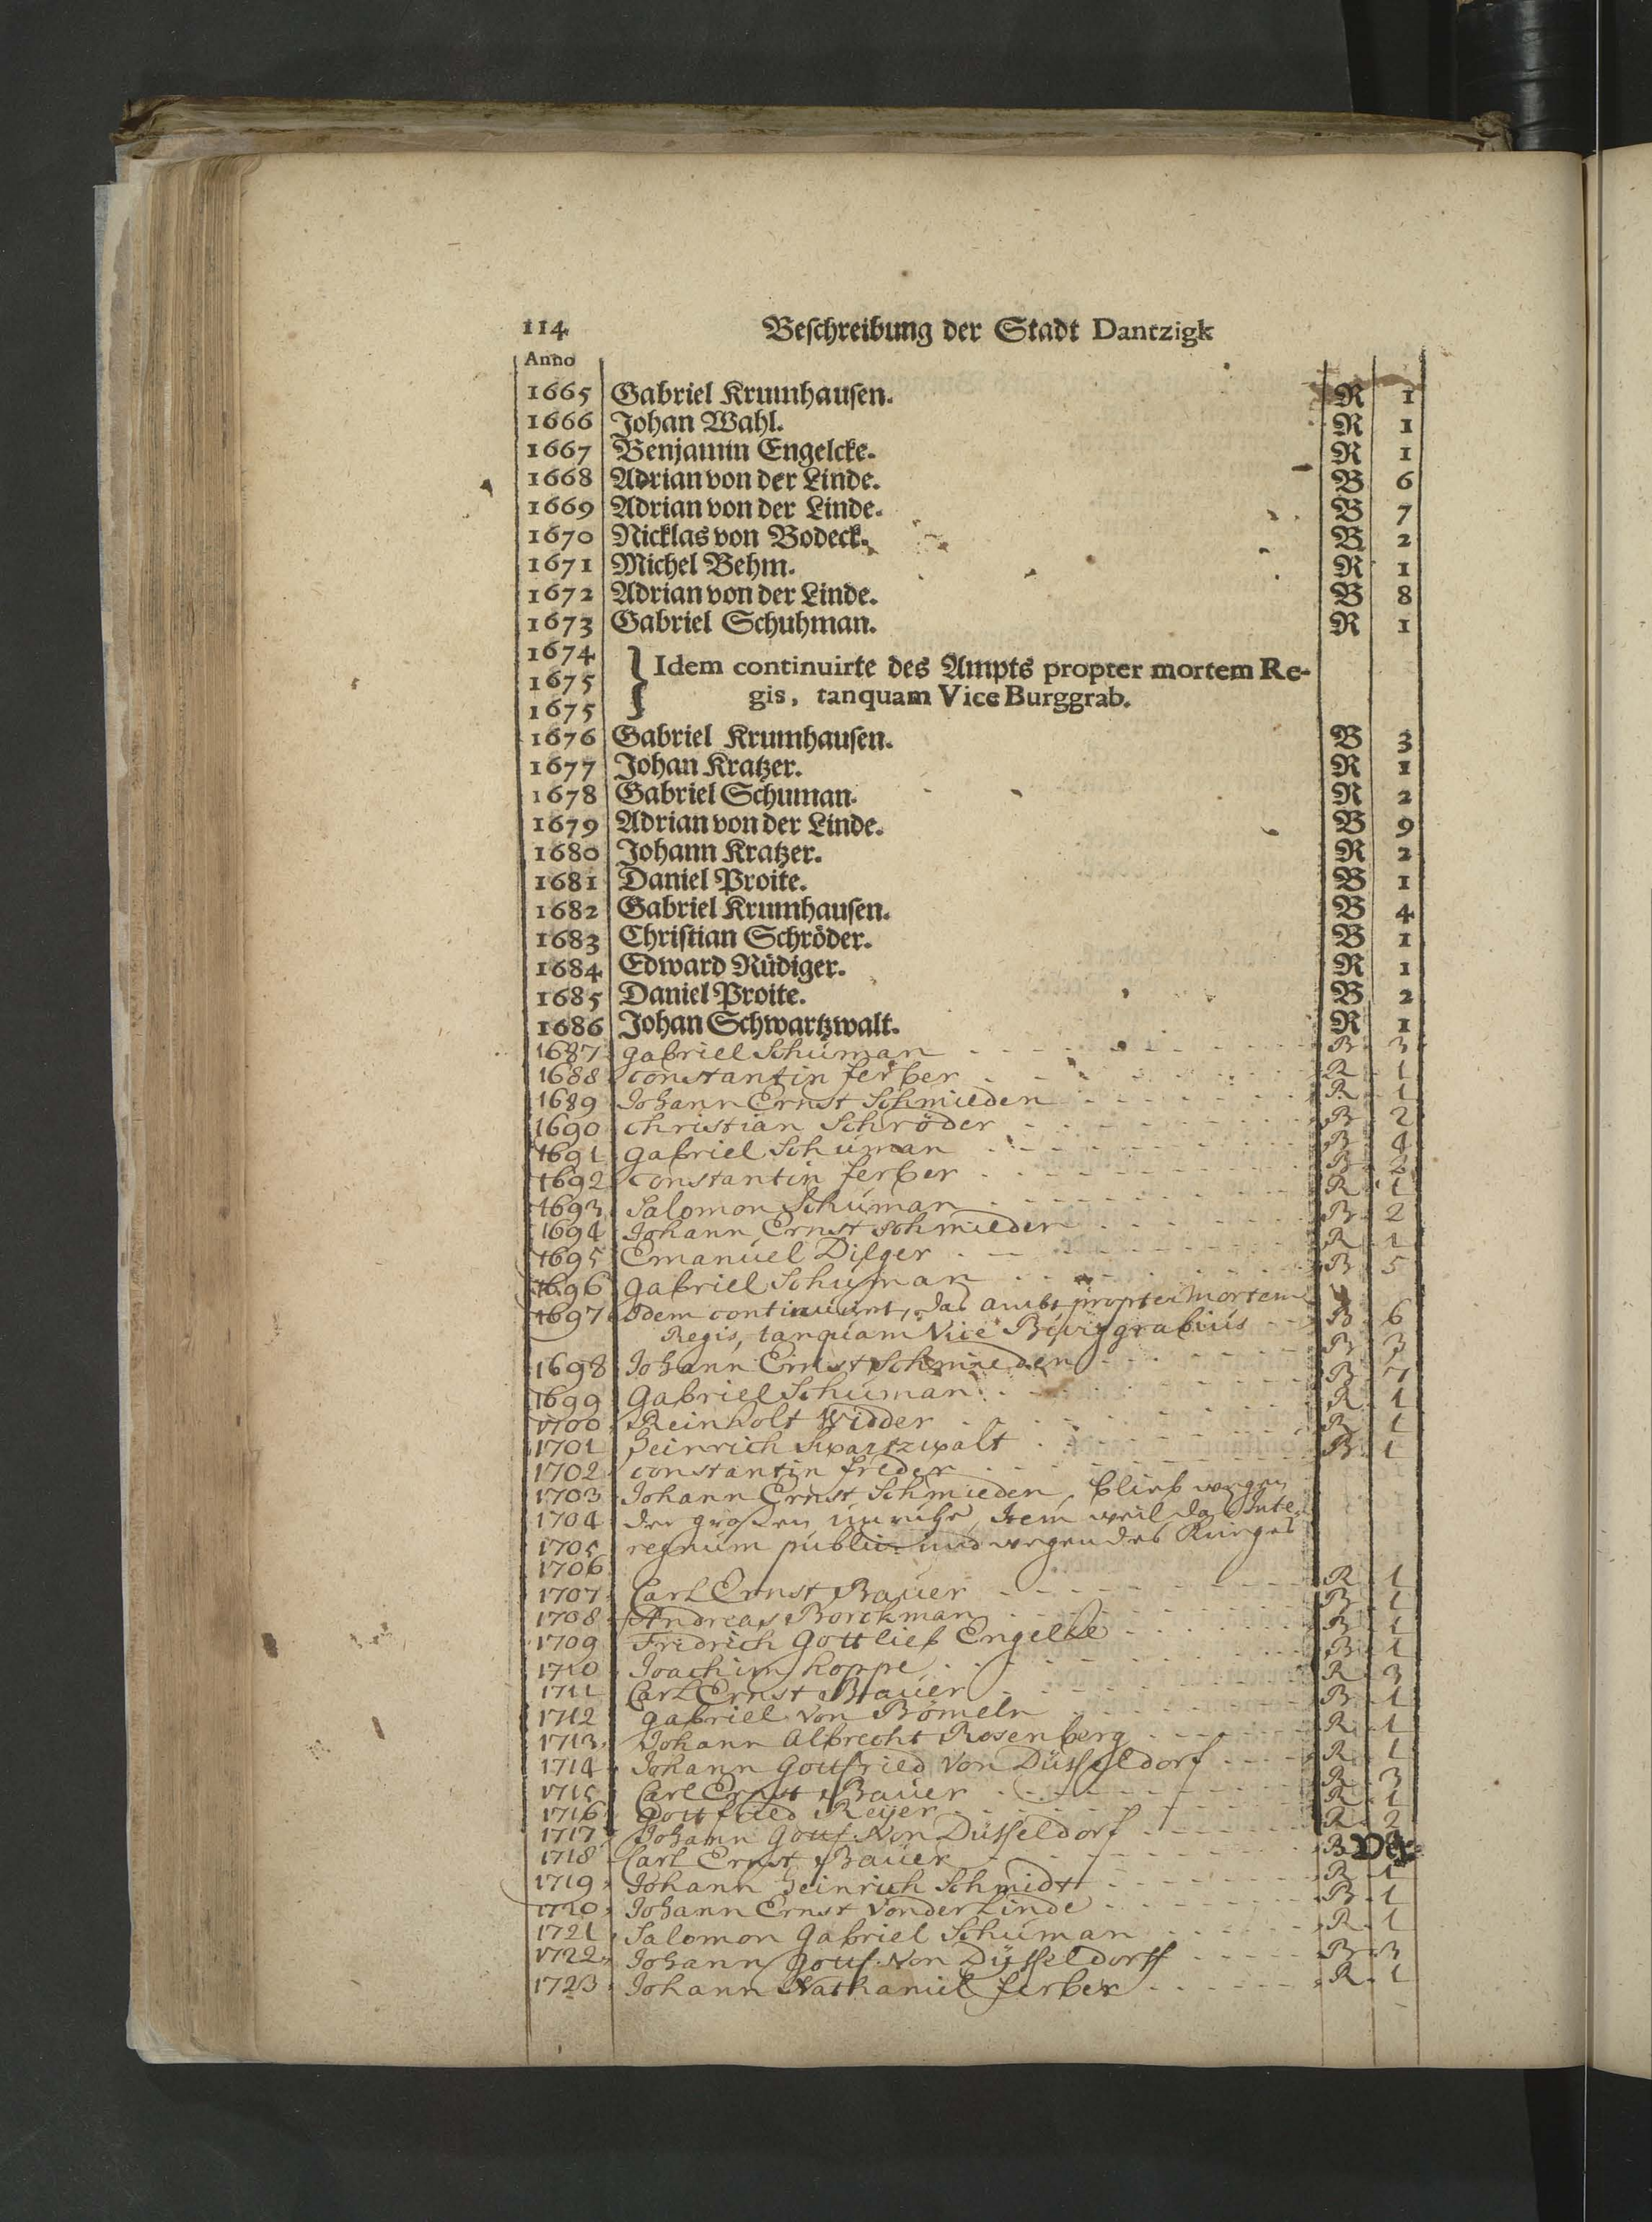 114 Beschreibung der Stadt Dantzigk
Anno
1665 Gabriel Krumhausen. R 1
1666 Johan Wahl. R 1
1667 Benjamin Engelcke. R 1
1668 Adrian von der Linde. B 6
1669 Adrian von der Linde. B 7
1670 Nicklas von Bodeck. B 2
1671 Michel Behm. R 1
1672 Adrian von der Linde. B 8
1673 Gabriel Schuhman. R 1
1674
1675 } Idem continuirte des Ampts propter mortem Re-
1675 gis, tanquam Vice Burggrab.
1676 Gabriel Krumhausen. B 3
1677 Johan Kratzer. R 1
1678 Gabriel Schuman. R 2
1679 Adrian von der Linde. B 9
1680 Johann Kratzer. R 2
1681 Daniel Proite. B 1
1682 Gabriel Krumhausen. B 4
1683 Christian Schröder. B 1
1684 Edward Rüdiger. R 1
1685 Daniel Proite. B 2
1686 Johan Schwartzwalt. R 1
1687 Gabriel Schuman B 3
1688 Constantin ferber R 1
1689 Johann Ernst Schmieden R 1
1690 Christian Schröder B 2
1691 Gabriel Schuman B 4
1692 Constantin ferber B 2
1693 Salomon Schuman R 1
1694 Johann Ernst Schmieden B 2
1695 Emanuel Dilger R 1
1696 Gabriel Schuman B 5
1697 Idem continuirt, das ambt propter mortem
Regis, tanquam Vice Burggrabius B 6
1698 Johann Ernst Schmieden B 3
1699 Gabriel Schuman B 7
1700 Reinholt Widder R 1
1701 Heinrich Swartzwalt R 1
1702 Constantin freder B 1
1703 Johann Ernst Schmieden, blieb wegen
1704 der großen unruhe, Item weil das Inte-
1705 regnum public und wegen des Krieges
1706
1707 Carl Ernst Bauer R 1
1708 Andreas Borckman B 1
1709 Fridrich Gottlieb Engelke B 1
1710 Joachim hoppe B 1
1711 Carl Ernst Bauer R 3
1712 Gabriel von Bömeln B 1
1713 Johann Albrecht Rosenberg R 1
1714 Johann Gottfried von Düsseldorf R 1
1715 Carl Ernst Bauer R 3
1716 Gottfried Reyer R 1
1717 Johann Gottf. von Düsseldorf R 2
1718 Carl Ernst Bauer B
Ver-
1719 Johann Heinrich Schmidt R 1
1720 Johann Ernst von der Linde B 1
1721 Salomon Gabriel Schuman R 1
1722 Johann Gottf. von Düsseldorff B 3
1723 Johann Nathaniel ferber R 1